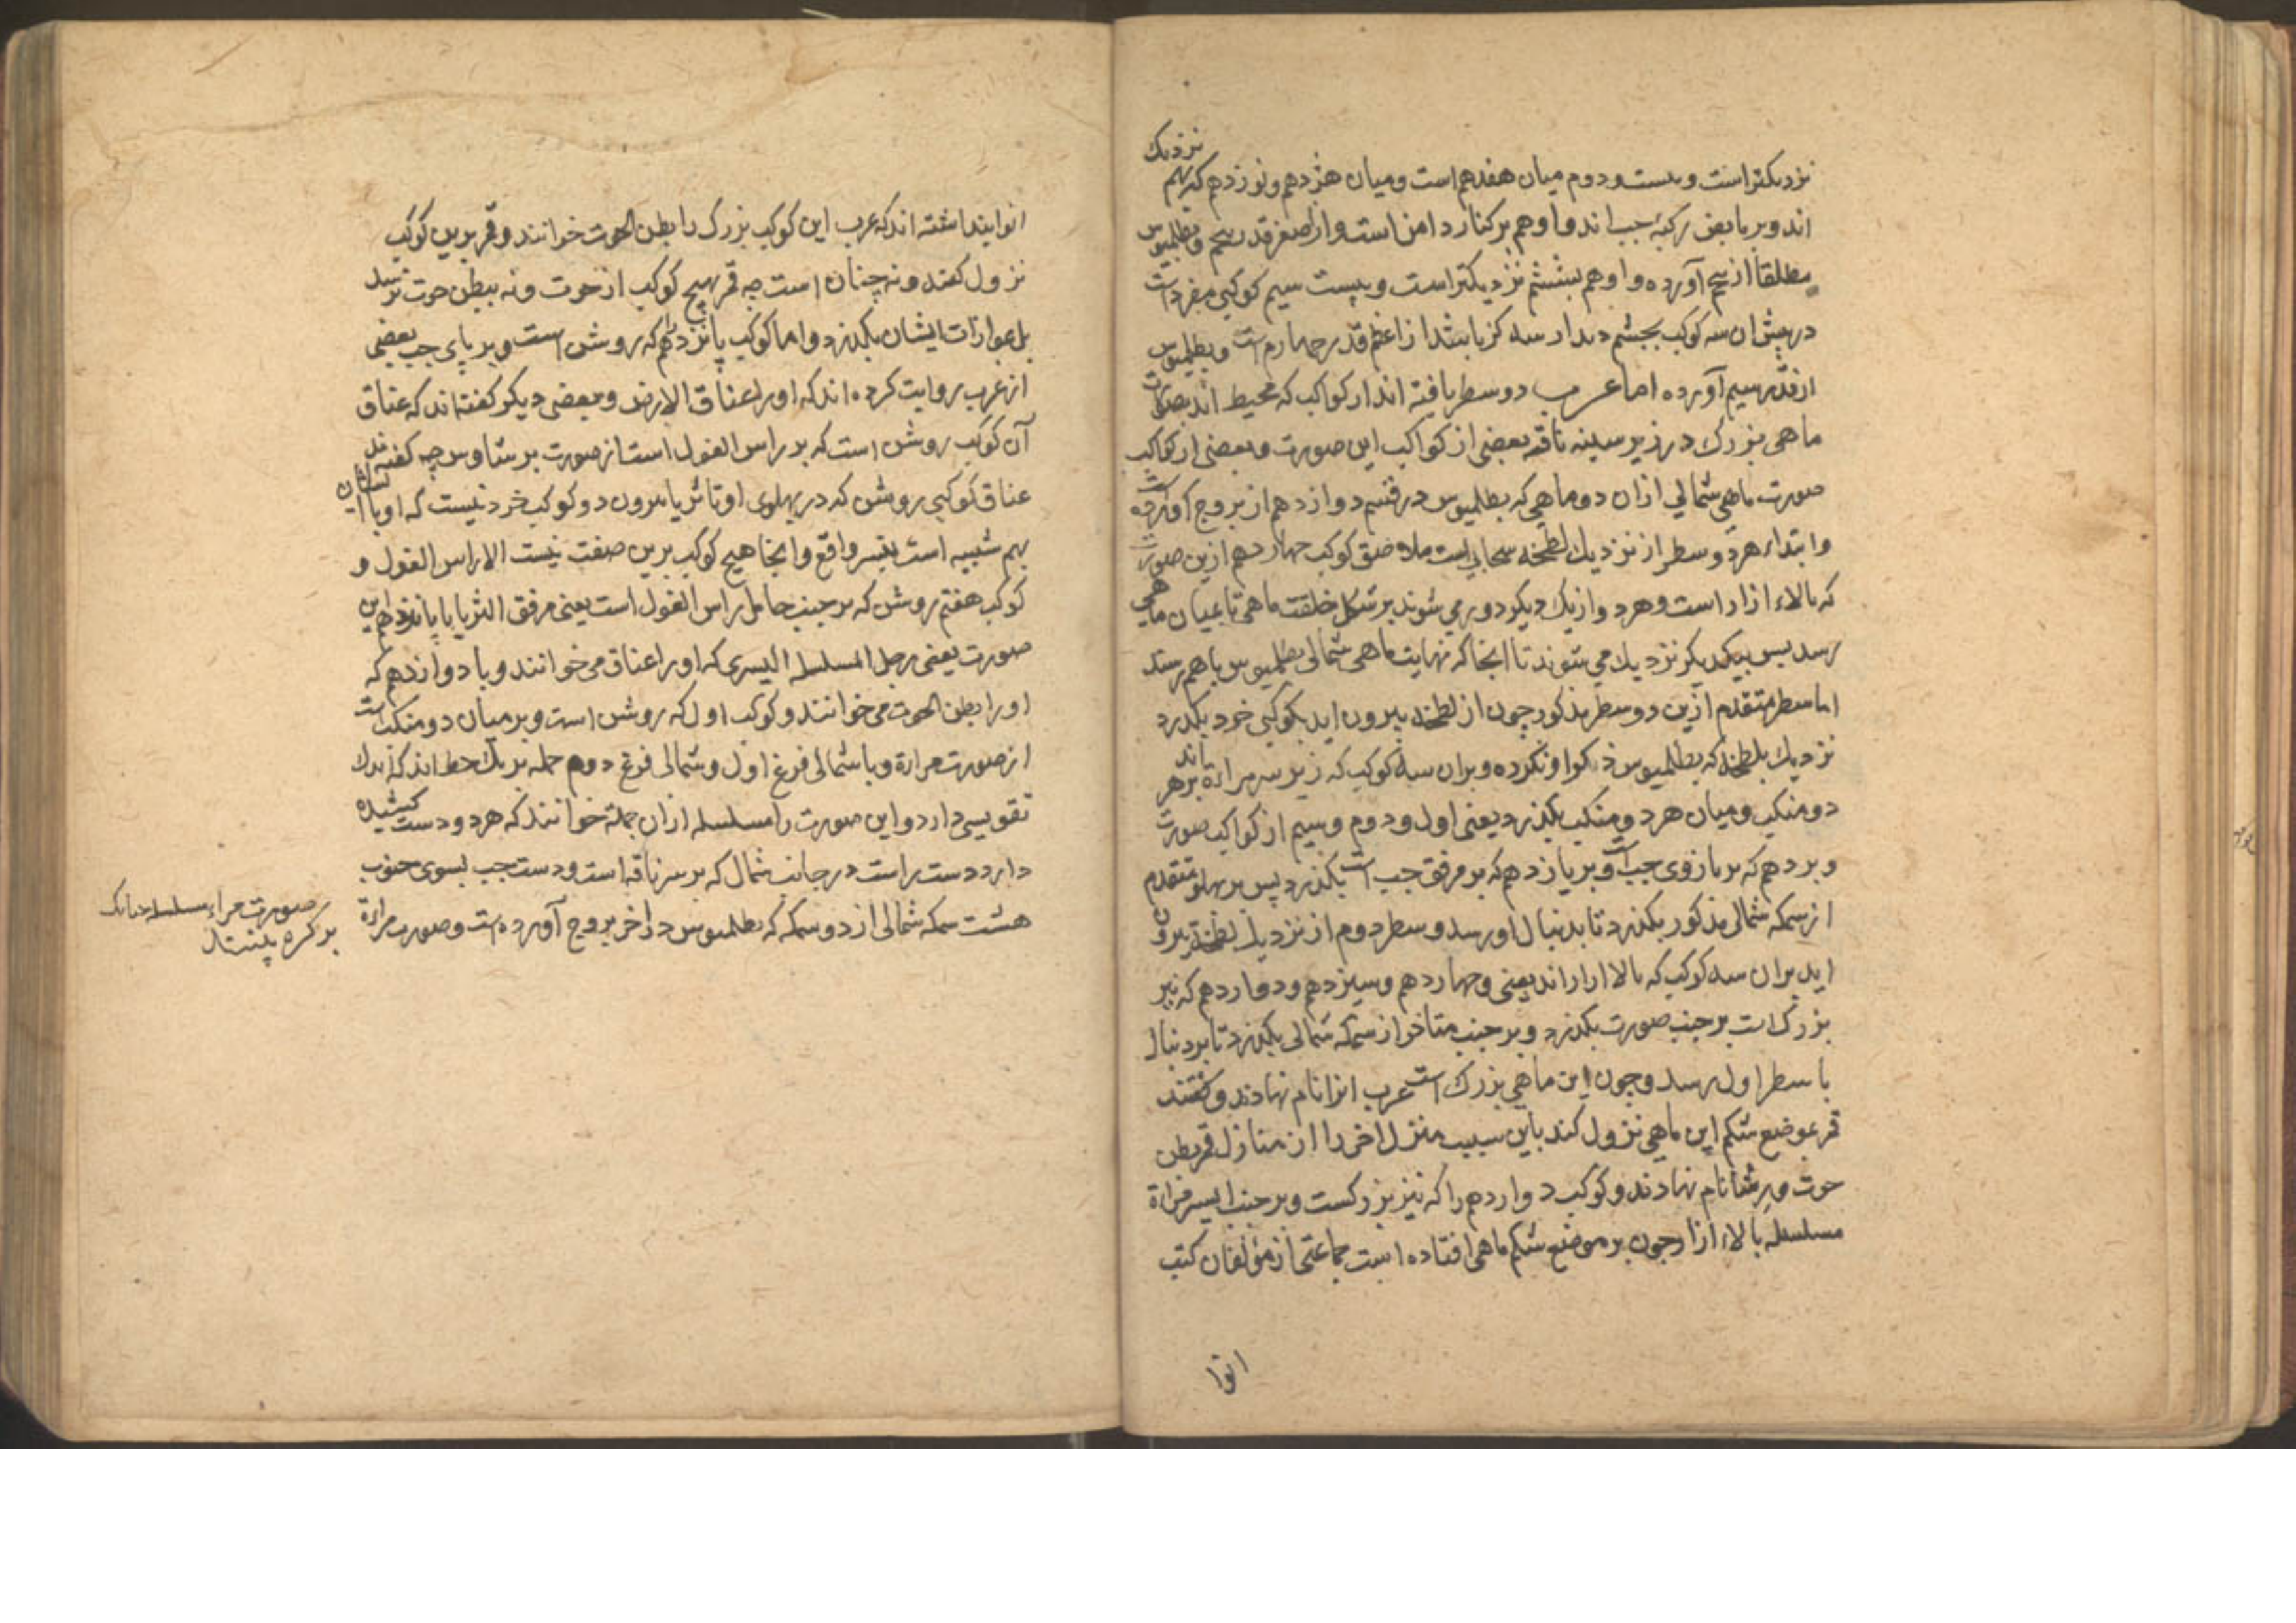 نزدیکتر است و بیست و دوم میان هفدهم است و میان هژدهم و نوزدهم که بهم نزدیک
اند و بر مابض رکبهٔ چپ اند و او هم بر کنار دامن است و از اصغر قدر پنجم و بطلمیوس
مطلقا از پنجم آورده و او هم بششم نزدیکتر است و بیست سیم کوکبی مفرد است
در پیش ان سه کوکب بچشم دیدار سه گز باشد از اعظم قدر چهارم است و بطلمیوس
از قدر سیم آورده اما عرب دو سطر یافته اند از کواکب که محیط اند بصورت
ماهی بزرک در زیر سینه ناقه بعضی از کواکب این صورت و بعضی از کواکب
صورت ماهی شمالی ازان دو ماهی که بطلمیوس در قسم دوازدهم از بروج آورده است
وابتداء هر دو سطر از نزدیک لطخه سحابی است ملاصق کوکب چهاردهم ازین صورت
که بالاء ازار است و هر دو از یک دیگر دور می شوند بر شکل خلقت ماهی تا بمیان ماهی
رسد پس بیکدیگر نزدیک می شوند تا انجا که نهایت ماهی شمالی بطلمیوس باهم رسند
اما سطر متقدم ازین دو سطر مذکور چون از لطخه بیرون اید بکوکبی خرد بکذرد
نزدیک بلطخه که بطلمیوس ذکر او نکرده و بران سه کوکب که زیر سر مراة اند بر هر
دو منکب و میان هر دو منکب بکذرد یعنی اول و دوم و سیم از کواکب صورت
و بر دهم که بر بازوی چپ است و بر یازدهم که بر مرفق چپ است بکذرد پس بر پهلو متقدم
از سمکه شمالی مذکور بکذرد تا بدنبال او رسد و سطر دوم از نزدیک لطخه بیرون
اید بران سه کوکب که بالا ازار اند یعنی و چهاردهم و سیزدهم و دوازدهم که نیر
بزرک است بر جنب صورت بکذرد و بر جنب متاخر از سمکه شمالی بکذرد تا بر دنبال
با سطر اول رسد و چون این ماهی بزرک است عرب انرا نام نهادند و کفتند
قمر بموضع شکم این ماهی نزول کند باین سبب منزل اخر را از منازل قمر بطن
حوت و رشا نام نهادند و کوکب دوازدهم را که نیز بزرکست و بر جنب ایسر مراة
مسلسله بالاء ازار چون بر موضع شکم ماهی افتاده است جماعتی از مؤلفان کتب
انوا
انوا پنداشته اند که عرب این کوکب بزرک را بطن الحوت خوانند و قمر برین کوکب
نزول کند و نه چنان است چه قمر بهیچ کوکب از حوت و نه ببطن حوت نرسد
بل بموازات ایشان بکذرد و اما کوکب پانزدهم که روشن است و بر پای چپ بعضی
از عرب روایت کرده اند که او را عناق الارض و بعضی دیکر کفته اند که عناق
آن کوکب روشن است که بر راس الغول است از صورت برشاوس چه کفته اند
عناق کوکبی روشن که در پهلوی او تا ثریا بیرون دو کوکب خرد نیست که او با ایشان
بهم شبیه است بنسر واقع و اینجا هیچ کوکب برین صفت نیست الا راس الغول و
کوکب هفتم روشن که بر جنب حامل راس الغول است یعنی مرفق الثریا یا پانزدهم این
صورت یعنی رجل المسلسله الیسری که او را عناق می خوانند و با دوازدهم که
او را بطن الحوت می خوانند و کوکب اول که روشن است و بر میان دو منکب است
از صورت مراة و با شمالی فرغ اول و شمالی فرغ دوم جمله بر یک خط اند که اندک
تقویسی دارد و این صورت را مسلسله ازان جمله خوانند که هر دو دست کشیده
دارد دست راست در جانب شمال که بر سر ناقه است و دست چپ بسوی جنوب
هست سمکه شمالی از دو سمکه که بطلمیوس در اخر بروج آورده است و صورت مراة
صورت مراة مسلسله چنانک
بر کره بینند